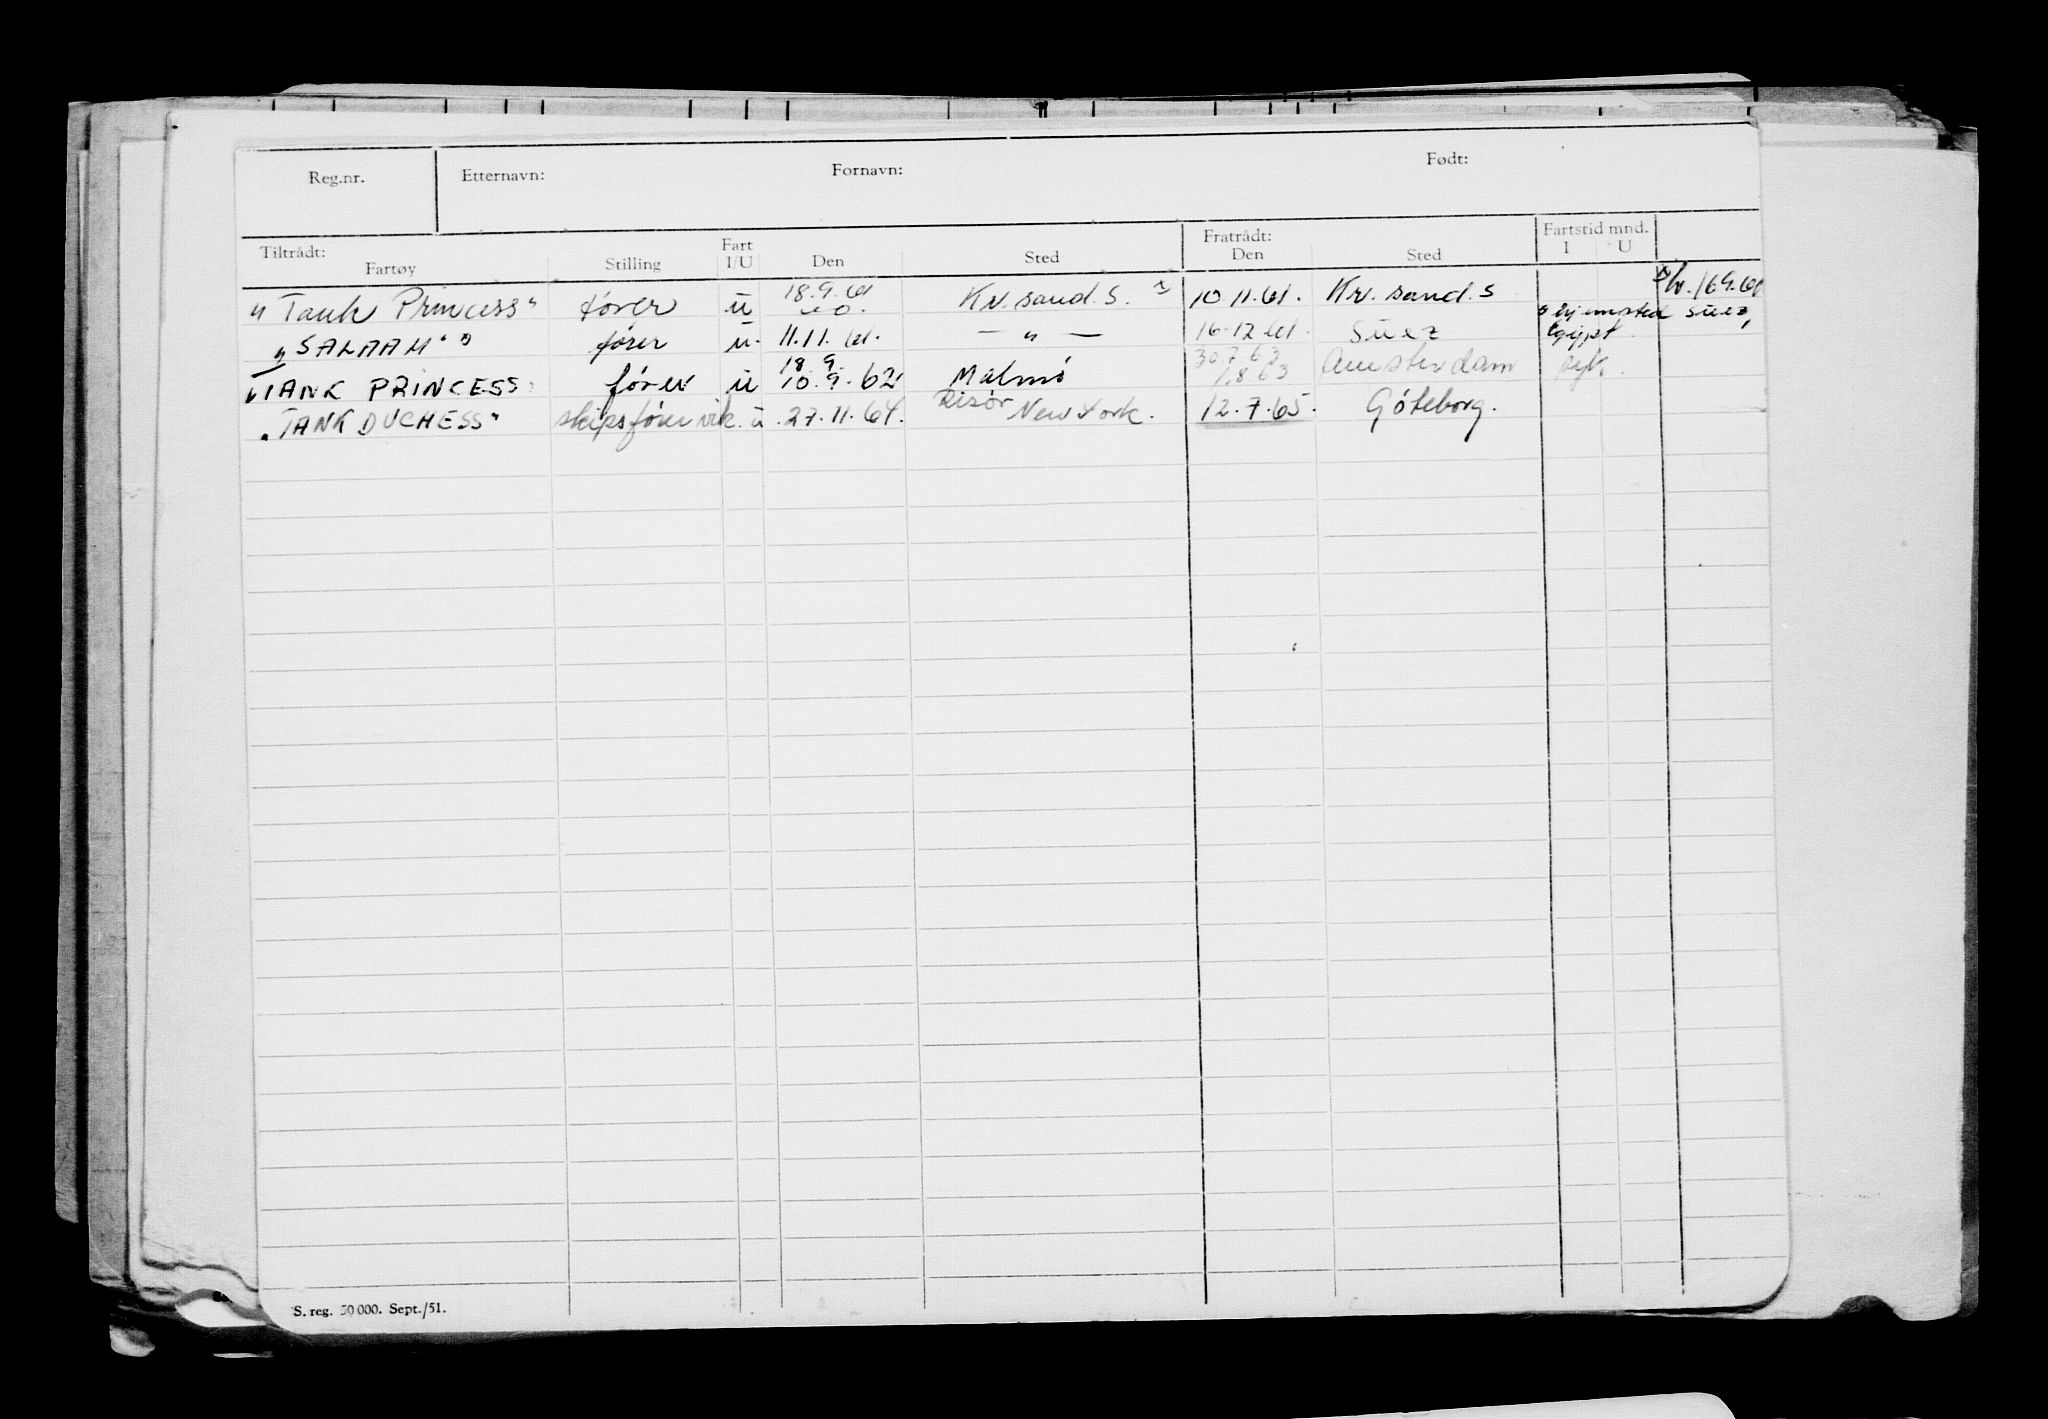 Reg.nr. Etternavn: Fornavn: Født:
Tiltrådt: Fartøy Stilling Fart I/U Den Sted Fratrådt: Den Sted Fartstid mnd. I U
"Tank Princess" fører u 18.9.61 Kr.sand.S. x) 10.11.61. Kr.sand.S x) 16.9.61
"SALAAM" fører u. 11.11.61. — " — 16.12.61. Suez Hjemsted Suez, Egypt.
18.9. 30.7.63
"TANK PRINCESS fører u 10.9.62 Malmö 1.8.63 Amsterdam syk.
"TANK DUCHESS" skipsfører vik. u. 27.11.64. Risør New York. 12.7.65. Göteborg.
S. reg. 50 000. Sept./51.